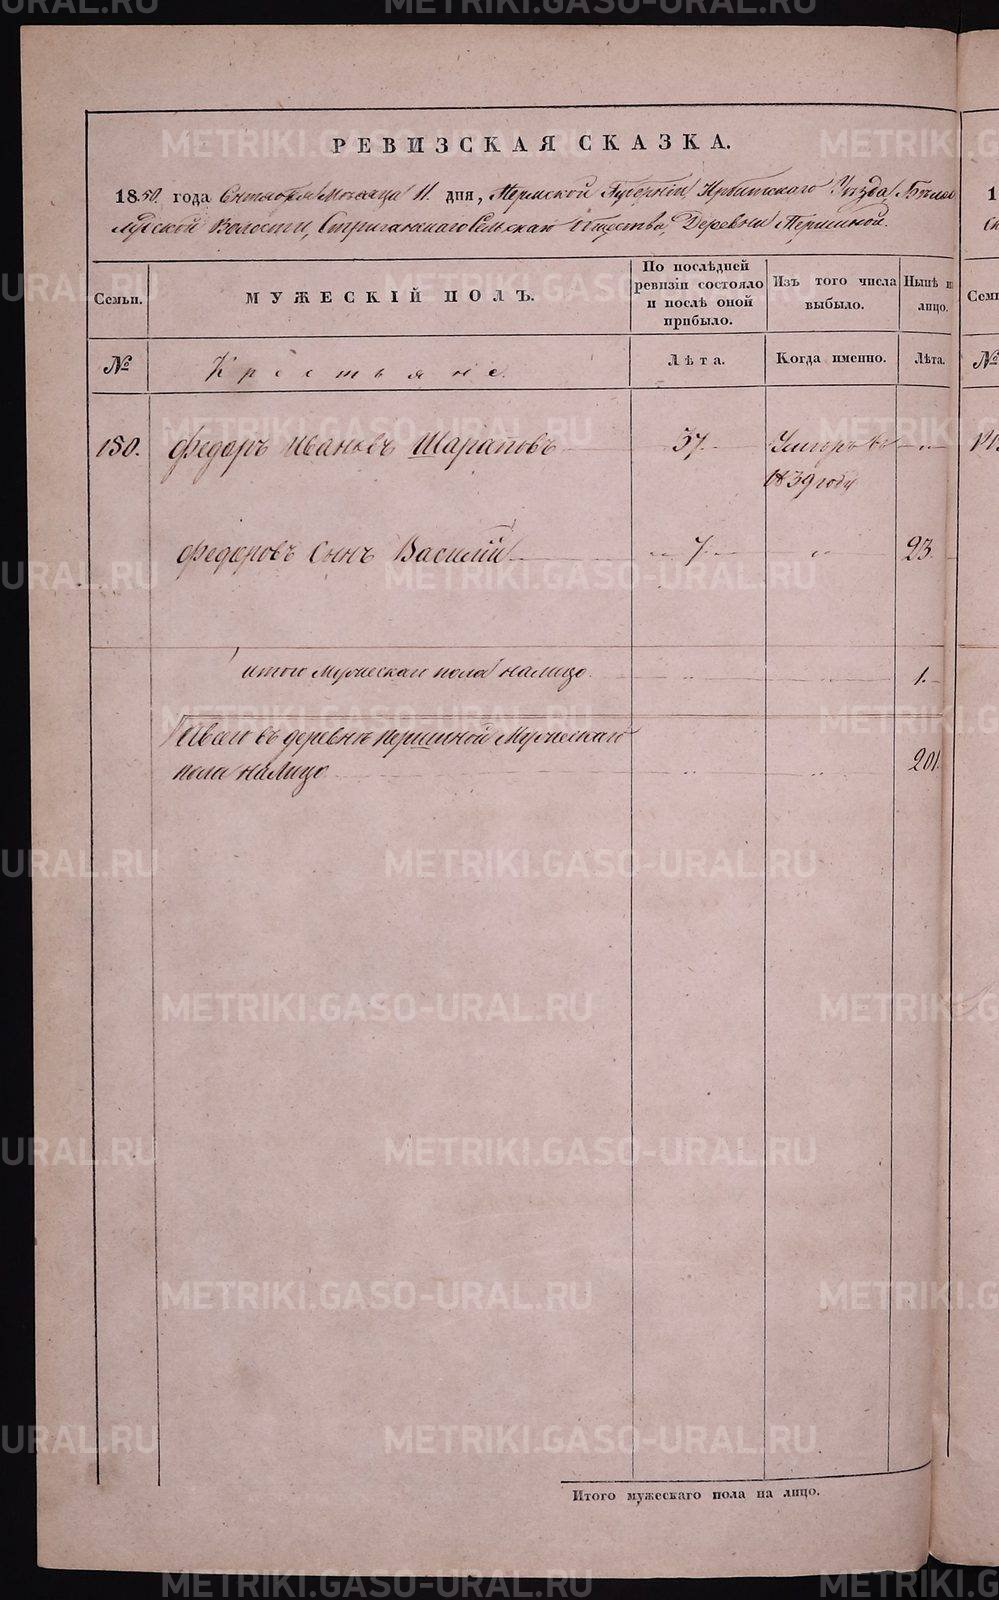 РЕВИЗСКАЯ СКАЗКА.
1850. года Сентября Месяца 11. дня, Пермской Губерніи Ирбитскаго Уезда, Бело
лудской Волости, Стриганскаго Сельскаго Общества, Деревни Першиной.
Семьи. МУЖЕСКІЙ ПОЛЪ. По послѣдней ревизіи состояло и послѣ оной прибыло. Изъ того числа выбыло. Нынѣ на лицо.
№ Крестьяне. Лѣта. Когда именно. Лѣта.
150. Федоръ Ивановъ Шараповъ 37. Умеръ въ „
1839 году
Федоровъ Сынъ Василій 7. „ 23.
итого Мужескаго пола на лицо. 1.
Всего въ деревнѣ Першиной Мужескаго
пола на лицо 201.
Итого мужескаго пола на лицо.
METRIKI.GASO-URAL.RU